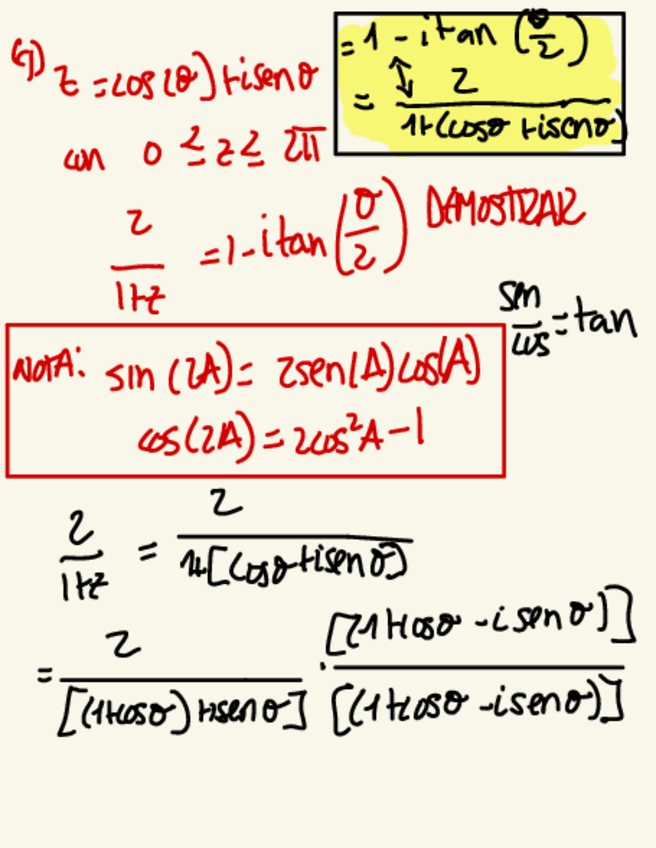 9) z = cos(θ) + i sen θ
con 0 ≤ z ≤ 2π
= 1 - i tan (θ/2)
↕
= 2/(1+(cosθ + i senθ)
2/(1+z) = 1 - i tan(θ/2) DEMOSTRAR
sen/cos = tan
NOTA: sin (2A) = 2sen(A)cos(A)
cos(2A) = 2cos²A - 1
2/(1+z) = 2/(1+[cosθ + i sen θ])
= 2/([(1+cosθ) + i sen θ]) · [(1+cosθ - i sen θ)]/[(1+cosθ - i senθ)]